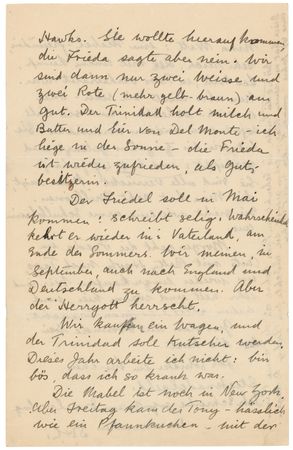 Hawks. Sie wollte hierauf kommen,
die Frieda sagte aber nein. Wir
sind dann nur zwei Weisse und
zwei Rote (mehr gelb-braun) am
gut. Der Trinidad holt milch und
Butter und Eir von Del Monte - ich
liege in der Sonne - die Frieda
ist wieder zufrieden, als Guts-
besitzerin.
Der Friedel soll in Mai
kommen: schreibt selig. Wahrscheinlich
kehrt er wieder in's Vaterland, am
Ende des Sommers. Wir meinen, in
September, auch nach England und
Deutschland zu kommen. Aber
der Herrgott herrscht.
Wir kauften ein Wagen, und
der Trinidad soll Kutscher werden.
Dieses Jahr arbeite ich nicht: bin
bös, dass ich so krank war.
Die Mabel ist noch in New York.
Aber Freitag kam der Tony - hässlich
wie ein Pfannkuchen - mit der